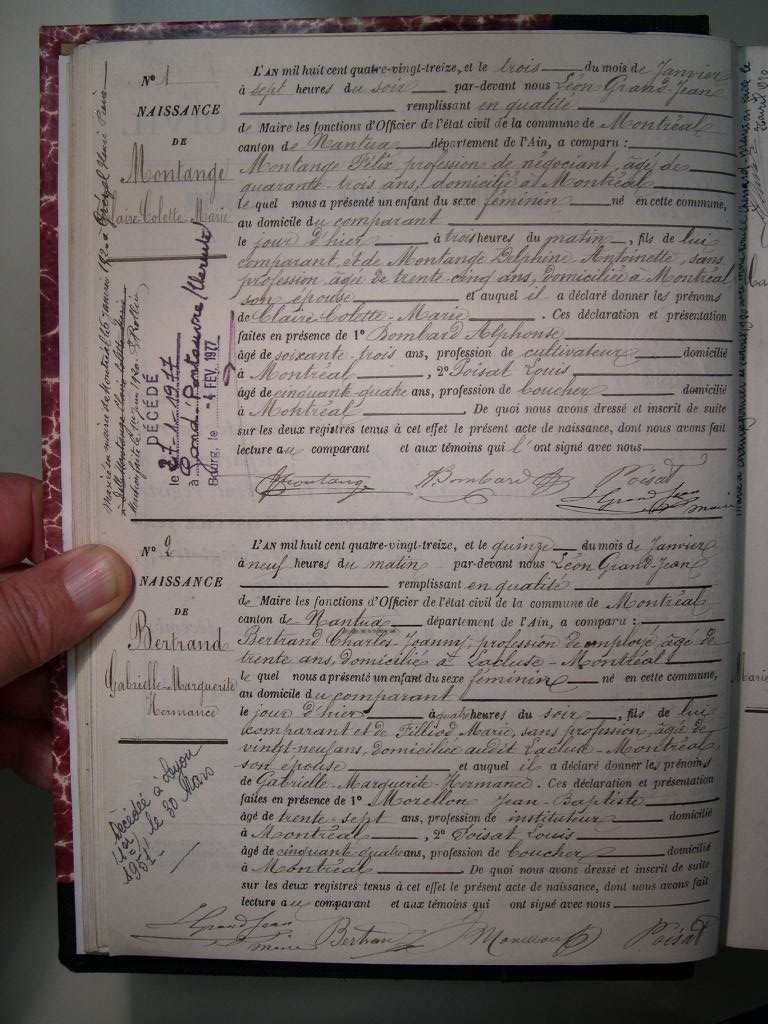 Nº 1
NAISSANCE
DE
Montange
Claire-Colette-Marie
L'AN mil huit cent quatre-vingt-treize, et le trois du mois de Janvier
à sept heures du soir par-devant nous Léon Grand-Jean
remplissant en qualité
de Maire les fonctions d'Officier de l'état civil de la commune de Montréal
canton de Nantua département de l'Ain, a comparu :
Montange Félix profession de négociant, âgé de
quarante-trois ans, domicilié à Montréal
le quel nous a présenté un enfant du sexe féminin né en cette commune,
au domicile du comparant
le jour d'hier à trois heures du matin, fils de lui
comparant, et de Montange Delphine Antoinette, sans
profession, âgée de trente-cinq ans, domiciliée à Montréal
son épouse et auquel il a déclaré donner les prénoms
de Claire-Colette-Marie. Ces déclaration et présentation
faites en présence de 1º Bombard Alphonse
âgé de soixante-trois ans, profession de cultivateur domicilié
à Montréal, 2º Poisat Louis
âgé de cinquante-quatre ans, profession de boucher domicilié
à Montréal De quoi nous avons dressé et inscrit de suite
sur les deux registres tenus à cet effet le présent acte de naissance, dont nous avons fait
lecture au comparant et aux témoins qui l'ont signé avec nous
Montange ABombard Poisat
LGrand Jean
maire
DÉCÉDÉ
le 27.1.1977
à Gond-Pontouvre/Charente
Bourg, le -4 FEV. 1977
Nº 2
NAISSANCE
DE
Bertrand
Gabrielle-Marguerite
Hermance
Décédée à Lyon
le 30 Mars
1951
L'AN mil huit cent quatre-vingt-treize, et le quinze du mois de Janvier
à neuf heures du matin par-devant nous Léon Grand-Jean
remplissant en qualité
de Maire les fonctions d'Officier de l'état civil de la commune de Montréal
canton de Nantua département de l'Ain, a comparu :
Bertrand Charles-Joanny, profession d'employé âgé de
trente ans, domicilié à Lacluse-Montréal
le quel nous a présenté un enfant du sexe féminin né en cette commune,
au domicile du comparant
le jour d'hier à quatre heures du soir, fils de lui
comparant et de Filliod Marie, sans profession, âgée de
vingt-neuf ans, domiciliée audit Lacluse-Montréal
son épouse et auquel il a déclaré donner les prénoms
de Gabrielle-Marguerite-Hermance. Ces déclaration et présentation
faites en présence de 1º Morellon Jean-Baptiste
âgé de trente-sept ans, profession de instituteur domicilié
à Montréal, 2º Poisat Louis
âgé de cinquante-quatre ans, profession de boucher domicilié
à Montréal De quoi nous avons dressé et inscrit de suite
sur les deux registres tenus à cet effet le présent acte de naissance, dont nous avons fait
lecture au comparant et aux témoins qui ont signé avec nous
LGrand Jean
maire Bertrand Morellon Poisat